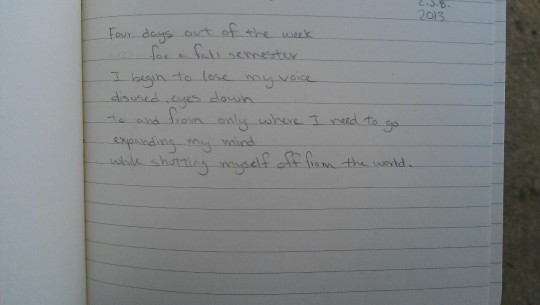 E.J.B.
2013
Four days out of the week
for a fall semester
I begin to lose my voice
disused, eyes down
to and from only where I need to go
expanding my mind
while shutting myself off from the world.